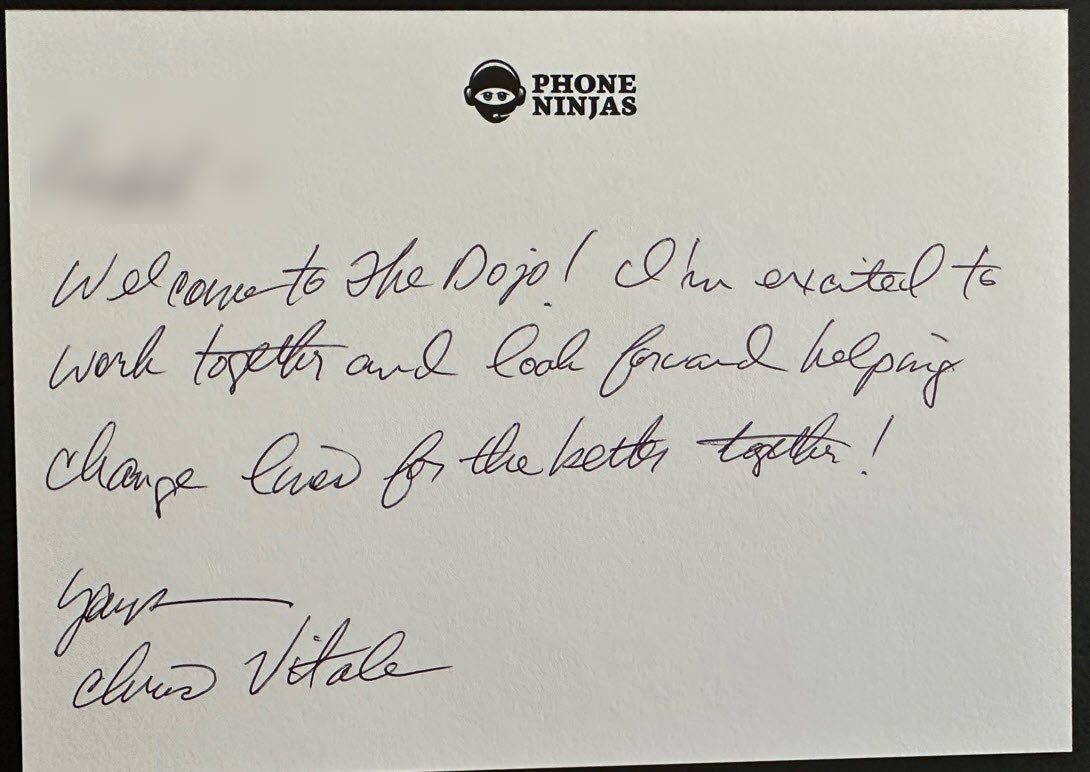 PHONE
NINJAS
Welcome to The Dojo! I'm excited to
work together and look forward helping
change lives for the better together!
Yours
Chris Vitale